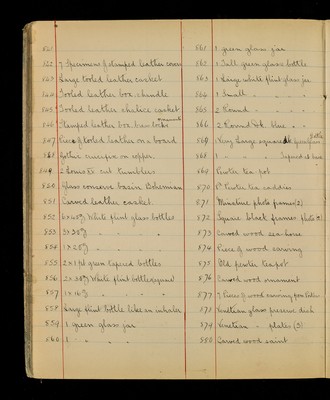 841
842 7 Specimens of stamped leather covers
843 Large tooled leather casket
844 Tooled leather box, handle
845 Tooled leather chalice casket
846 Stamped leather box, ornaments
847 Piece of tooled leather on a board
848 Gothic crucifix on copper
849 2 Louis XV cut tumblers
850 Glass conserve basin Bohemian
851 Carved leather casket
852 6 x 40 White flint glass bottles
853 3 x 30 " "
854 1 x 20 " "
855 2 x 1 pt green tapered bottles
856 2 x 30 White flint bottles squared
857 1 x 16 " " "
858 Large flint bottle like an inhaler
859 1 green glass jar
860 1 " " "
861 1 green glass jar
862 1 Tall green glass bottle
863 1 Large white flint glass jar
864 1 Small " " "
865 2 Round " " "
866 2 Round " blue "
Bottle
867 1 Very large squared green glass
868 1 " " Tapered at base
869 Pewter tea pot
870 Pr Pewter tea caddies
871 Miniature photo frames (2)
872 Square black frames photo (2)
873 Carved wood sea-horse
874 Piece of wood carving
875 Old pewter teapot
876 Carved wood ornament
877 7 Pieces of wood carving
878 Venetian glass preserve dish
879 Venetian " plates (3)
880 Carved wood saint